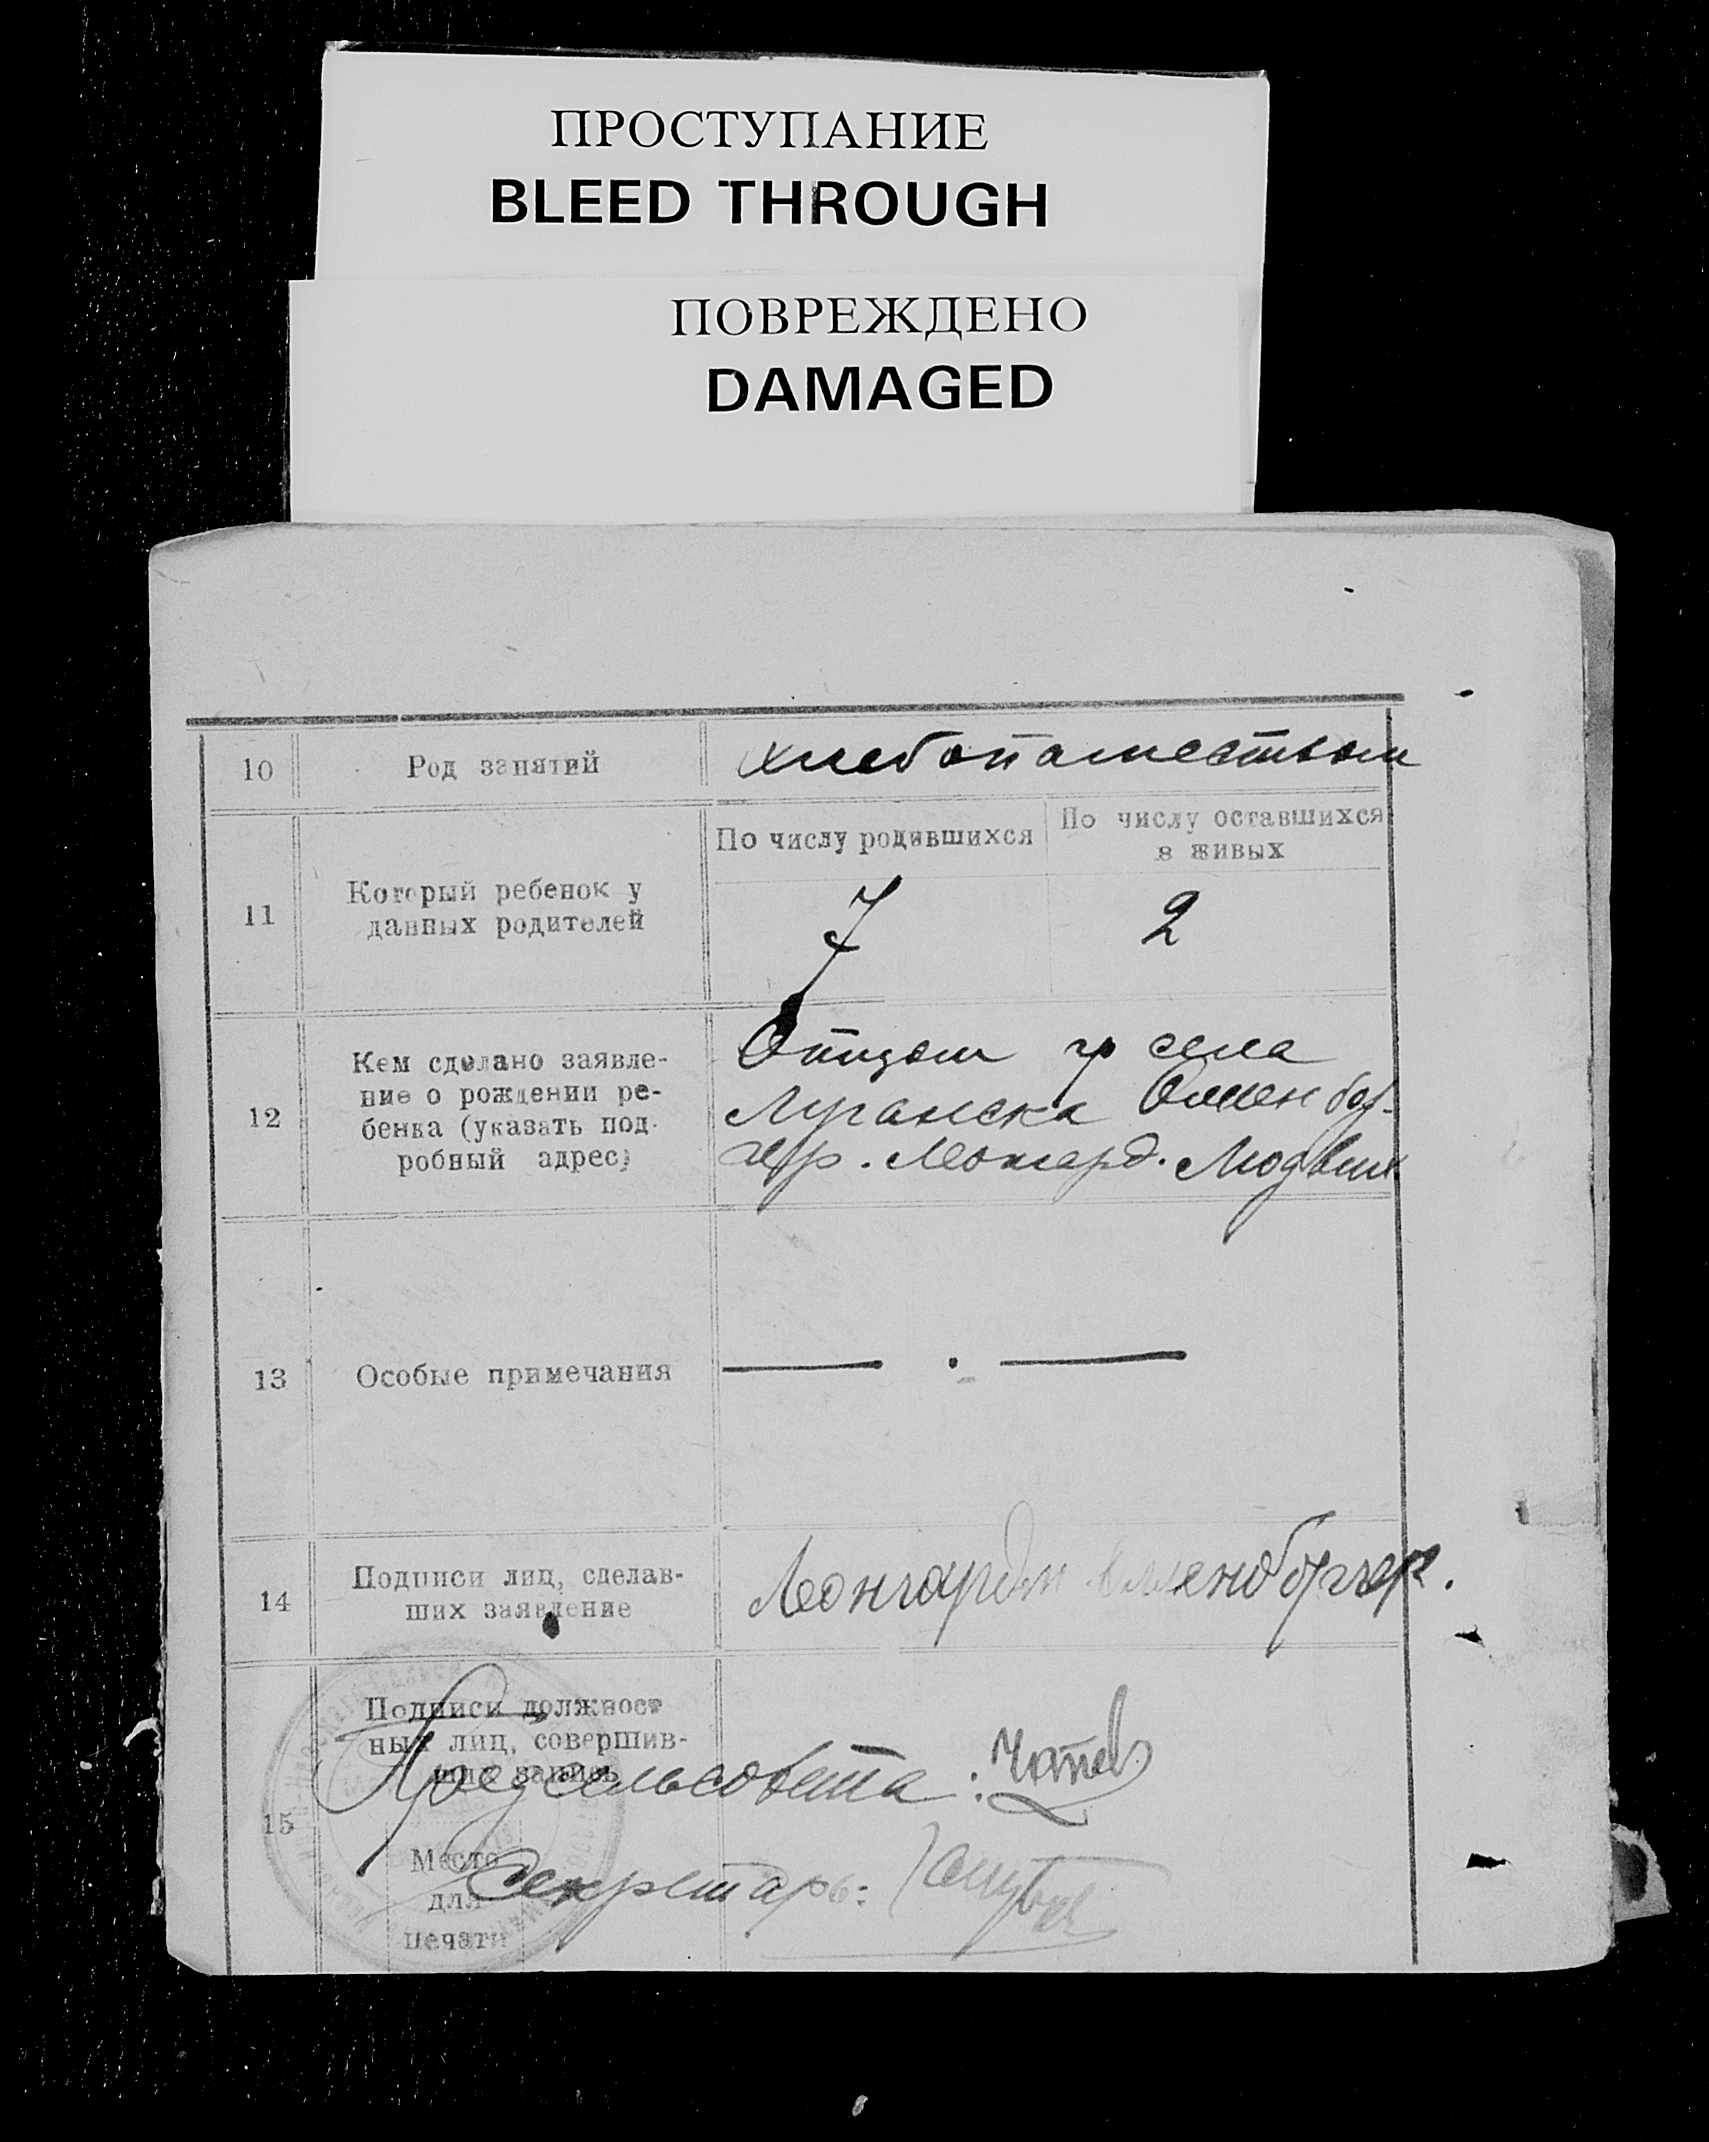 ПРОСТУПАНИЕ
BLEED THROUGH
ПОВРЕЖДЕНО
DAMAGED
10 Род занятий хлебопашеством
11 Который ребенок у
данных родителей
По числу родившихся
7
По числу оставшихся
в живых
2
12 Кем сделано заявле-
ние о рождении ре-
бенка (указать под-
робный адрес)
Отцом гр села
Луганска Оленбор-
гер. Леонгард. Людвиг
13 Особые примечания — . —
14 Подписи лиц, сделав-
ших заявление
Леонгардт
15 Подписи должност
ных лиц, совершив-
ших запись
Пред сельсовета:
Секретарь:
Место
для
печати